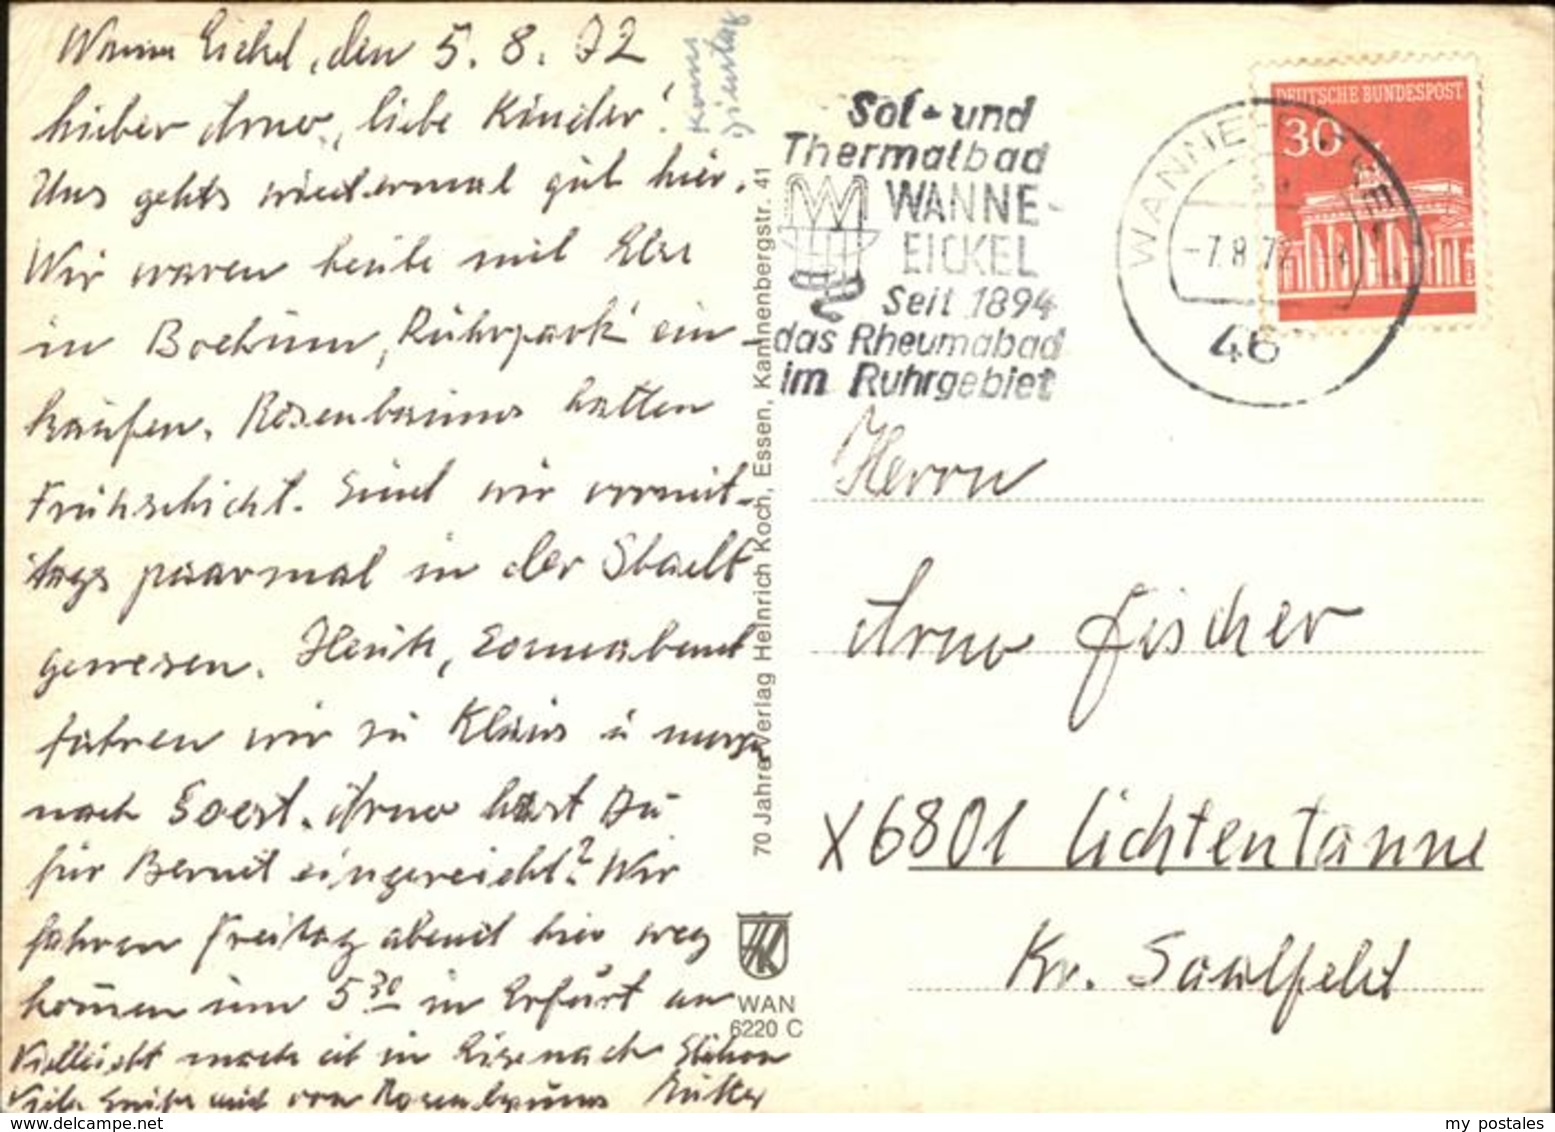 Wanne Eickel, den 5. 8. 72
Lieber Arno, liebe Kinder!
Uns gehts wiedermal gut hier.
Wir waren heute mit Else
in Bochum, Ruhrpark ein-
kaufen. Rosenbaums hatten
Frühschicht. Sind wir vormit-
tags paarmal in der Stadt
gewesen. Heute, Sonnabend
fahren wir zu Klaus u morgen
nach Soest. Arno hast Du
für Bernd eingereicht? Wir
fahren Freitag abend hier weg
kommen um 5 30 in Erfurt an
Vielleicht mach ich in Eisenach Station
Viele Grüße auch von Rosenbaums Mutter
Komm
Dienstag
70 Jahre Verlag Heinrich Koch, Essen, Kannenbergstr. 41
WAN
6220 C
Sol- und
Thermalbad
WANNE-
EICKEL
Seit 1894
das Rheumabad
im Ruhrgebiet
WANNE-EICKEL
-7.8.72
46
DEUTSCHE BUNDESPOST
30
Herrn
Arno Fischer
X 6801 Lichtentanne
Kr. Saalfeld
www.delcampe.net
my postales